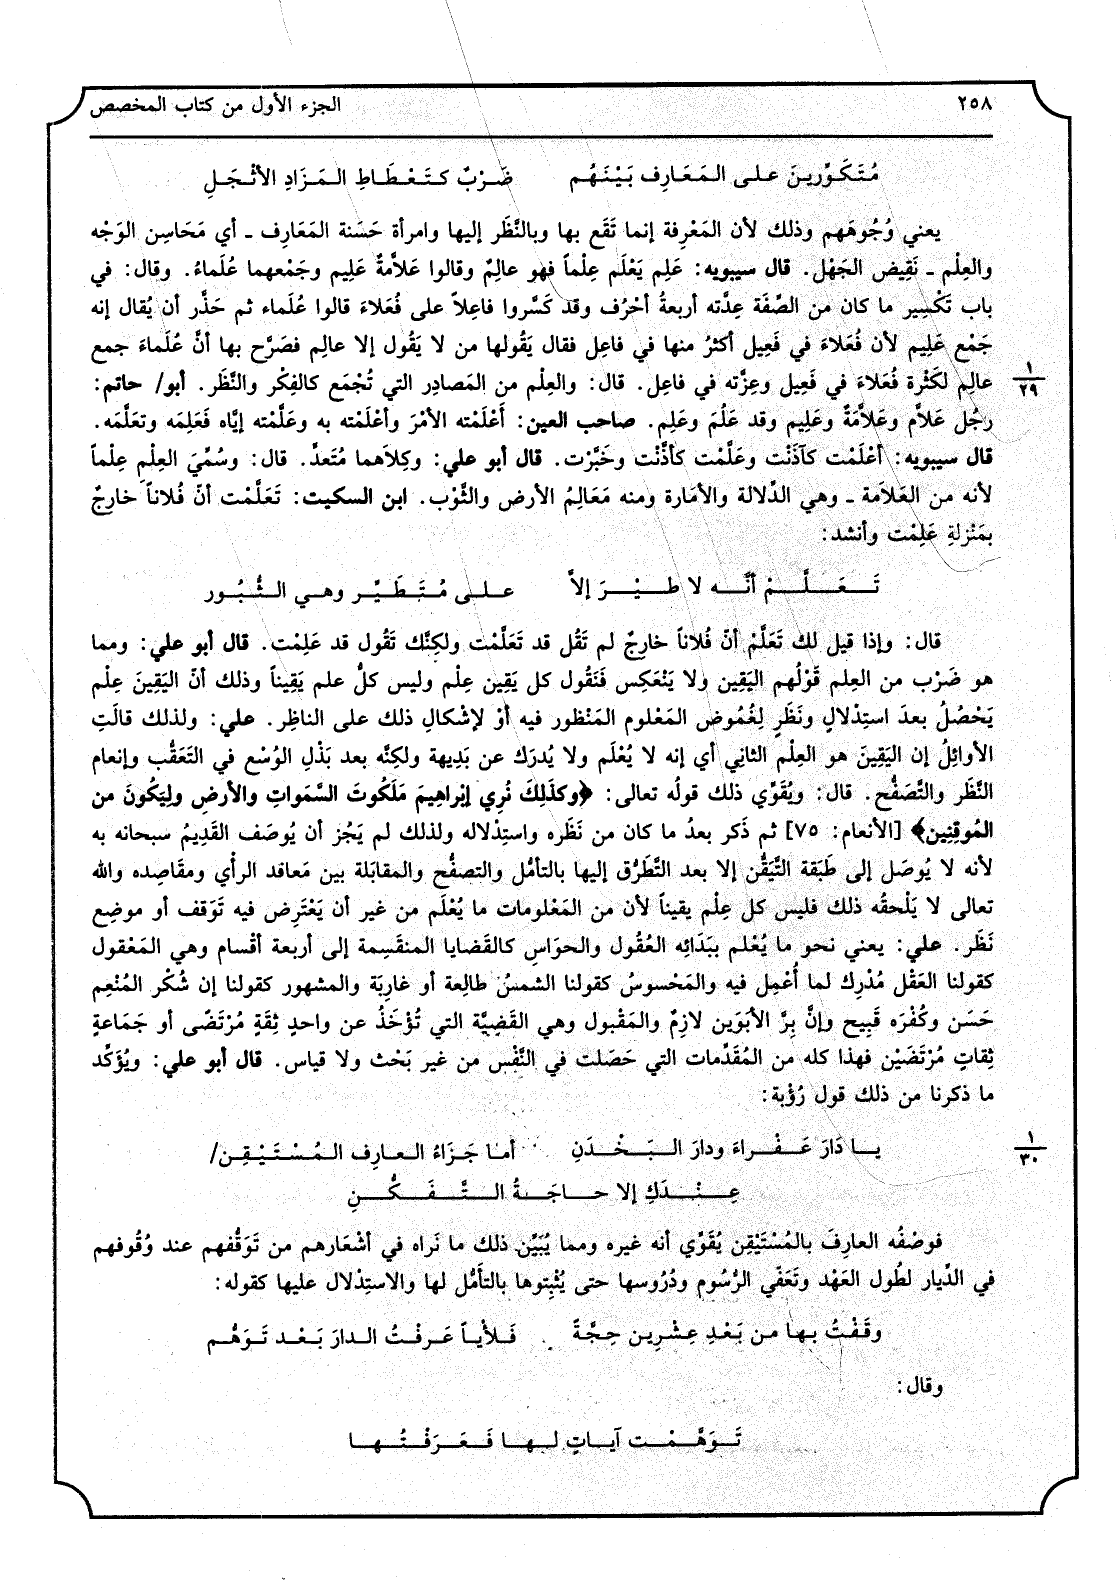 ٢٥٨ الجزء الأول من كتاب المخصص
مُتَكَوِّرِينَ على المَعَارِف بَيْنَهُم ضَرْبٌ كتَعْطَاطِ المَزَادِ الأثْجَلِ
يعني وُجُوهَهم وذلك لأن المَعْرِفة إنما تَقَع بها وبالنَّظَر إليها وامرأة حَسَنة المَعَارِف ـ أي مَحَاسِن الوَجْه
والعِلْم ـ نَقِيض الجَهْل. قال سيبويه: عَلِم يَعْلَم عِلْماً فهو عالِمٌ وقالوا عَلاَّمةٌ عَلِيم وجَمْعهما عُلَماءُ. وقال: في
باب تَكْسِير ما كان من الصِّفَة عِدَّته أربعةُ أحْرُف وقد كَسَّروا فاعِلاً على فُعَلاءَ قالوا عُلَماء ثم حَذَّر أن يُقال إنه
جَمْع عَلِيم لأن فُعَلاءَ في فَعِيل أكثرُ منها في فاعِل فقال يَقُولها من لا يَقُول إلا عالِم فصَرَّح بها أنَّ عُلَماءَ جمع
عالِم لكَثْرة فُعَلاءَ في فَعِيل وعِزَّته في فاعِل. قال: والعِلْم من المَصادِر التي تُجْمَع كالفِكْر والنَّظَر. أبو/ حاتم:
١
٢٩
رجُل عَلاَّم وعَلاَّمَةٌ وعَلِيم وقد عَلُمَ وعَلِم. صاحب العين: أَعْلَمْته الأمْرَ وأعْلَمْته به وعَلَّمْته إيَّاه فَعَلِمَه وتعَلَّمَه.
قال سيبويه: أعْلَمْت كآذَنْت وعَلَّمْت كأذَّنْت وخَبَّرْت. قال أبو علي: وكِلاَهما مُتَعدَّ. قال: وسُمِّيَ العِلْم عِلْماً
لأنه من العَلاَمة ـ وهي الدِّلالة والأمَارة ومنه مَعَالِمُ الأرض والثَّوْب. ابن السكيت: تَعَلَّمْت أنّ فُلاناً خارِجٌ
بمَنْزِلةِ عَلِمْت وأنشد:
تَـعَـلَّـمْ أنَّـه لا طَـيْـرَ إلاَّ عـلـى مُـتَـطَـيِّـر وهـي الـثُّـبُـور
قال: وإذا قيل لك تَعَلَّمْ أنّ فُلاناً خارِجٌ لم تَقُل قد تَعَلَّمْت ولكِنَّك تَقُول قد عَلِمْت. قال أبو علي: ومما
هو ضَرْب من العِلم قَوْلُهم اليَقِين ولا يَنْعَكِس فَنَقُول كل يَقِين عِلْم وليس كلُّ علم يَقِيناً وذلك أنّ اليَقِينَ عِلْم
يَحْصُلُ بعدَ استِدْلالٍ ونَظَرٍ لِغُموض المَعْلوم المَنْظور فيه أوْ لإشْكالِ ذلك على الناظِر. علي: ولذلك قالَتِ
الأوائِلُ إن اليَقِينَ هو العِلْم الثاني أي إنه لا يُعْلَم ولا يُدرَك عن بَدِيهة ولكِنَّه بعد بَذْلِ الوُسْع في التَعَقُّب وإنعام
النَّظَر والتَّصَفُّح. قال: ويُقَوِّي ذلك قولُه تعالى: ﴿وكذَلِكَ نُرِي إبْراهِيمَ مَلَكُوتَ السَّموَاتِ والأرضِ ولِيَكُونَ من
المُوقِنِين﴾ [الأنعام: ٧٥] ثم ذَكر بعدُ ما كان من نَظَره واستِدْلاله ولذلك لم يَجُز أن يُوصَف القَدِيمُ سبحانه به
لأنه لا يُوصَل إلى طَبَقة التَّيَقُّن إلا بعد التَّطَرُّق إليها بالتأمُّل والتصفُّح والمقابَلة بين مَعاقد الرأْي ومقَاصِده والله
تعالى لا يَلْحقُه ذلك فليس كل عِلْم يقيناً لأن من المَعْلومات ما يُعْلَم من غير أن يَعْتَرِض فيه تَوَقف أو موضِع
نَظَر. علي: يعني نحو ما يُعْلم ببَدَائِه العُقُول والحوَاس كالقَضايا المنقَسِمة إلى أربعة أقْسام وهي المَعْقول
كقولنا العَقْل مُدْرِك لما أُعْمِل فيه والمَحْسوسُ كقولنا الشمسُ طالِعة أو غارِبَة والمشهور كقولنا إن شُكْر المُنْعِم
حَسَن وكُفْرَه قَبِيح وإنَّ بِرَّ الأبَوَين لازِمٌ والمَقْبول وهي القَضِيَّة التي تُؤْخَذُ عن واحدٍ ثِقَةٍ مُرْتَضًى أو جَمَاعةٍ
ثِقاتٍ مُرْتَضَيْن فهذا كله من المُقَدِّمات التي حَصَلت في النَّفْس من غير بَحْث ولا قياس. قال أبو علي: ويُؤَكِّد
ما ذكرنا من ذلك قول رُؤْبة:
يـا دَارَ عَـفْـراءَ ودارَ الـبَـخْـدَنِ أمـا جَـزَاءُ الـعـارِف الـمُـسْـتَـيْـقِـن/
١
٣٠
عِـنْـدَكِ إلا حـاجَـةُ الـتَّـفَـكُّـنِ
فوصْفُه العارِفَ بالمُسْتَيْقِن يُقَوِّي أنه غيره ومما يُبَيِّن ذلك ما نَراه في أشْعَارهم من تَوَقُّفهم عند وُقُوفهم
في الدِّيار لطُول العَهْد وتَعَفّي الرُّسُوم ودُرُوسها حتى يُثْبِتوها بالتأَمُّل لها والاستِدْلال عليها كقوله:
وقَفْتُ بـهـا مـن بَـعْـدِ عِـشْـرِين حِجَّةً فَـلأياً عَـرفْـتُ الـدارَ بَـعْـد تَـوَهُّـم
وقال:
تَـوَهَّـمْـت آيـاتٍ لـهـا فَـعَـرَفْـتُـهـا